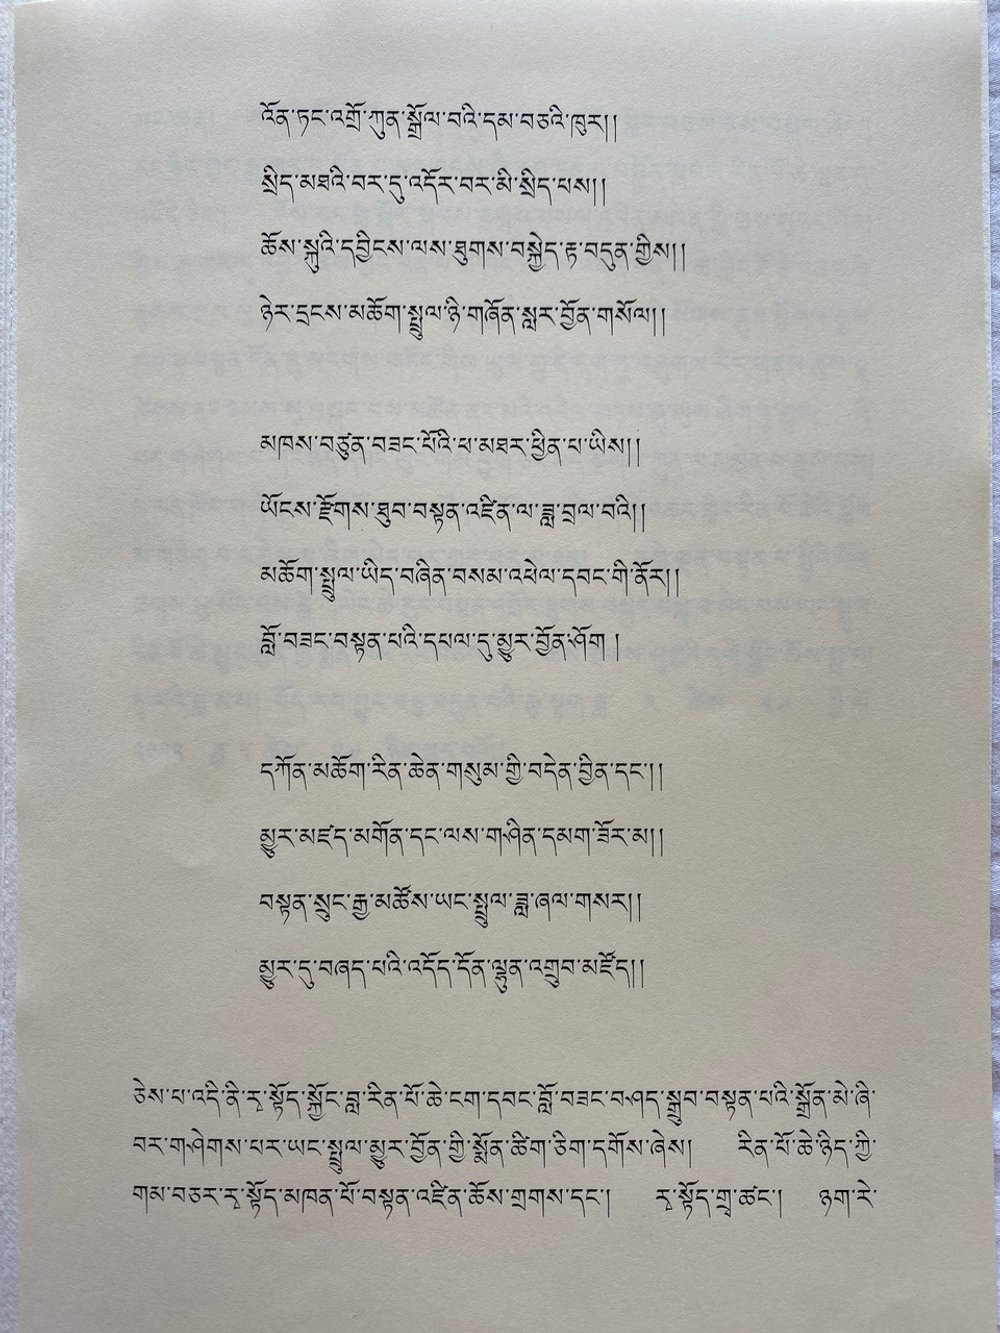 འོན་ཏང་འགྲོ་ཀུན་སྒྲོལ་བའི་དམ་བཅའི་ཁུར།།
སྲིད་མཐའི་བར་དུ་འདོར་བར་མི་སྲིད་པས།།
ཆོས་སྐུའི་དབྱིངས་ལས་ཐུགས་བསྐྱེད་རྟ་བདུན་གྱིས།།
ཉེར་དྲངས་མཆོག་སྤྲུལ་ཉི་གཞོན་སླར་བྱོན་གསོལ།།
མཁས་བཙུན་བཟང་པོའི་ཕ་མཐར་ཕྱིན་པ་ཡིས།།
ཡོངས་རྫོགས་ཐུབ་བསྟན་འཛིན་ལ་ཟླ་བྲལ་བའི།།
མཆོག་སྤྲུལ་ཡིད་བཞིན་བསམ་འཕེལ་དབང་གི་ནོར།།
བློ་བཟང་བསྟན་པའི་དཔལ་དུ་མྱུར་བྱོན་ཤོག །
དཀོན་མཆོག་རིན་ཆེན་གསུམ་གྱི་བདེན་བྱིན་དང་།།
མྱུར་མཛད་མགོན་དང་ལས་གཤིན་དམག་ཟོར་མ།།
བསྟན་སྲུང་རྒྱ་མཚོས་ཡང་སྤྲུལ་ཟླ་ཞལ་གསར།།
མྱུར་དུ་བཞད་པའི་འདོད་དོན་ལྷུན་འགྲུབ་མཛོད།།
ཅེས་པ་འདི་ནི་རྭ་སྟོད་སྐྱོང་བླ་རིན་པོ་ཆེ་ངག་དབང་བློ་བཟང་བཤད་སྒྲུབ་བསྟན་པའི་སྒྲོན་མེ་ཞི་
བར་གཤེགས་པར་ཡང་སྤྲུལ་མྱུར་བྱོན་གྱི་སྨོན་ཚིག་ཅིག་དགོས་ཞེས། རིན་པོ་ཆེ་ཉིད་ཀྱི་
གམ་བཅར་རྭ་སྟོད་མཁན་པོ་བསྟན་འཛིན་ཆོས་གྲགས་དང་། རྭ་སྟོད་གྲྭ་ཚང་། ཉག་རེ་